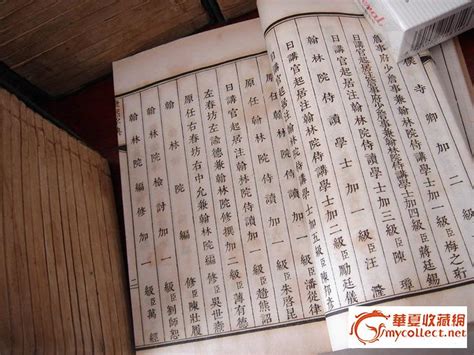 僕寺卿加一級臣梅之珩
詹事府少詹事兼翰林院侍講學士加四級臣蔣廷錫
詹事府少詹事兼翰林院侍讀學士加三級臣陳璋
日講官起居注翰林院侍講學士加二級臣汪漋
翰林院侍讀學士加二級臣勵廷儀
日講官起居注翰林院侍講學士加五級臣陳邦彥
日講官起居注翰林院侍讀加一級臣潘從律
日講官起居注翰林院侍讀加一級臣朱啓昆
原任翰林院侍讀加一級臣趙熊詔
左春坊左諭德兼翰林院修撰加二級臣薄有德
原任右春坊右中允兼翰林院編修臣吳世燾
翰林院編修臣陳壯履
翰林院檢討加一級臣劉師恕
翰林院編修加一級臣萬經
二
華夏收藏網
mycollect.net